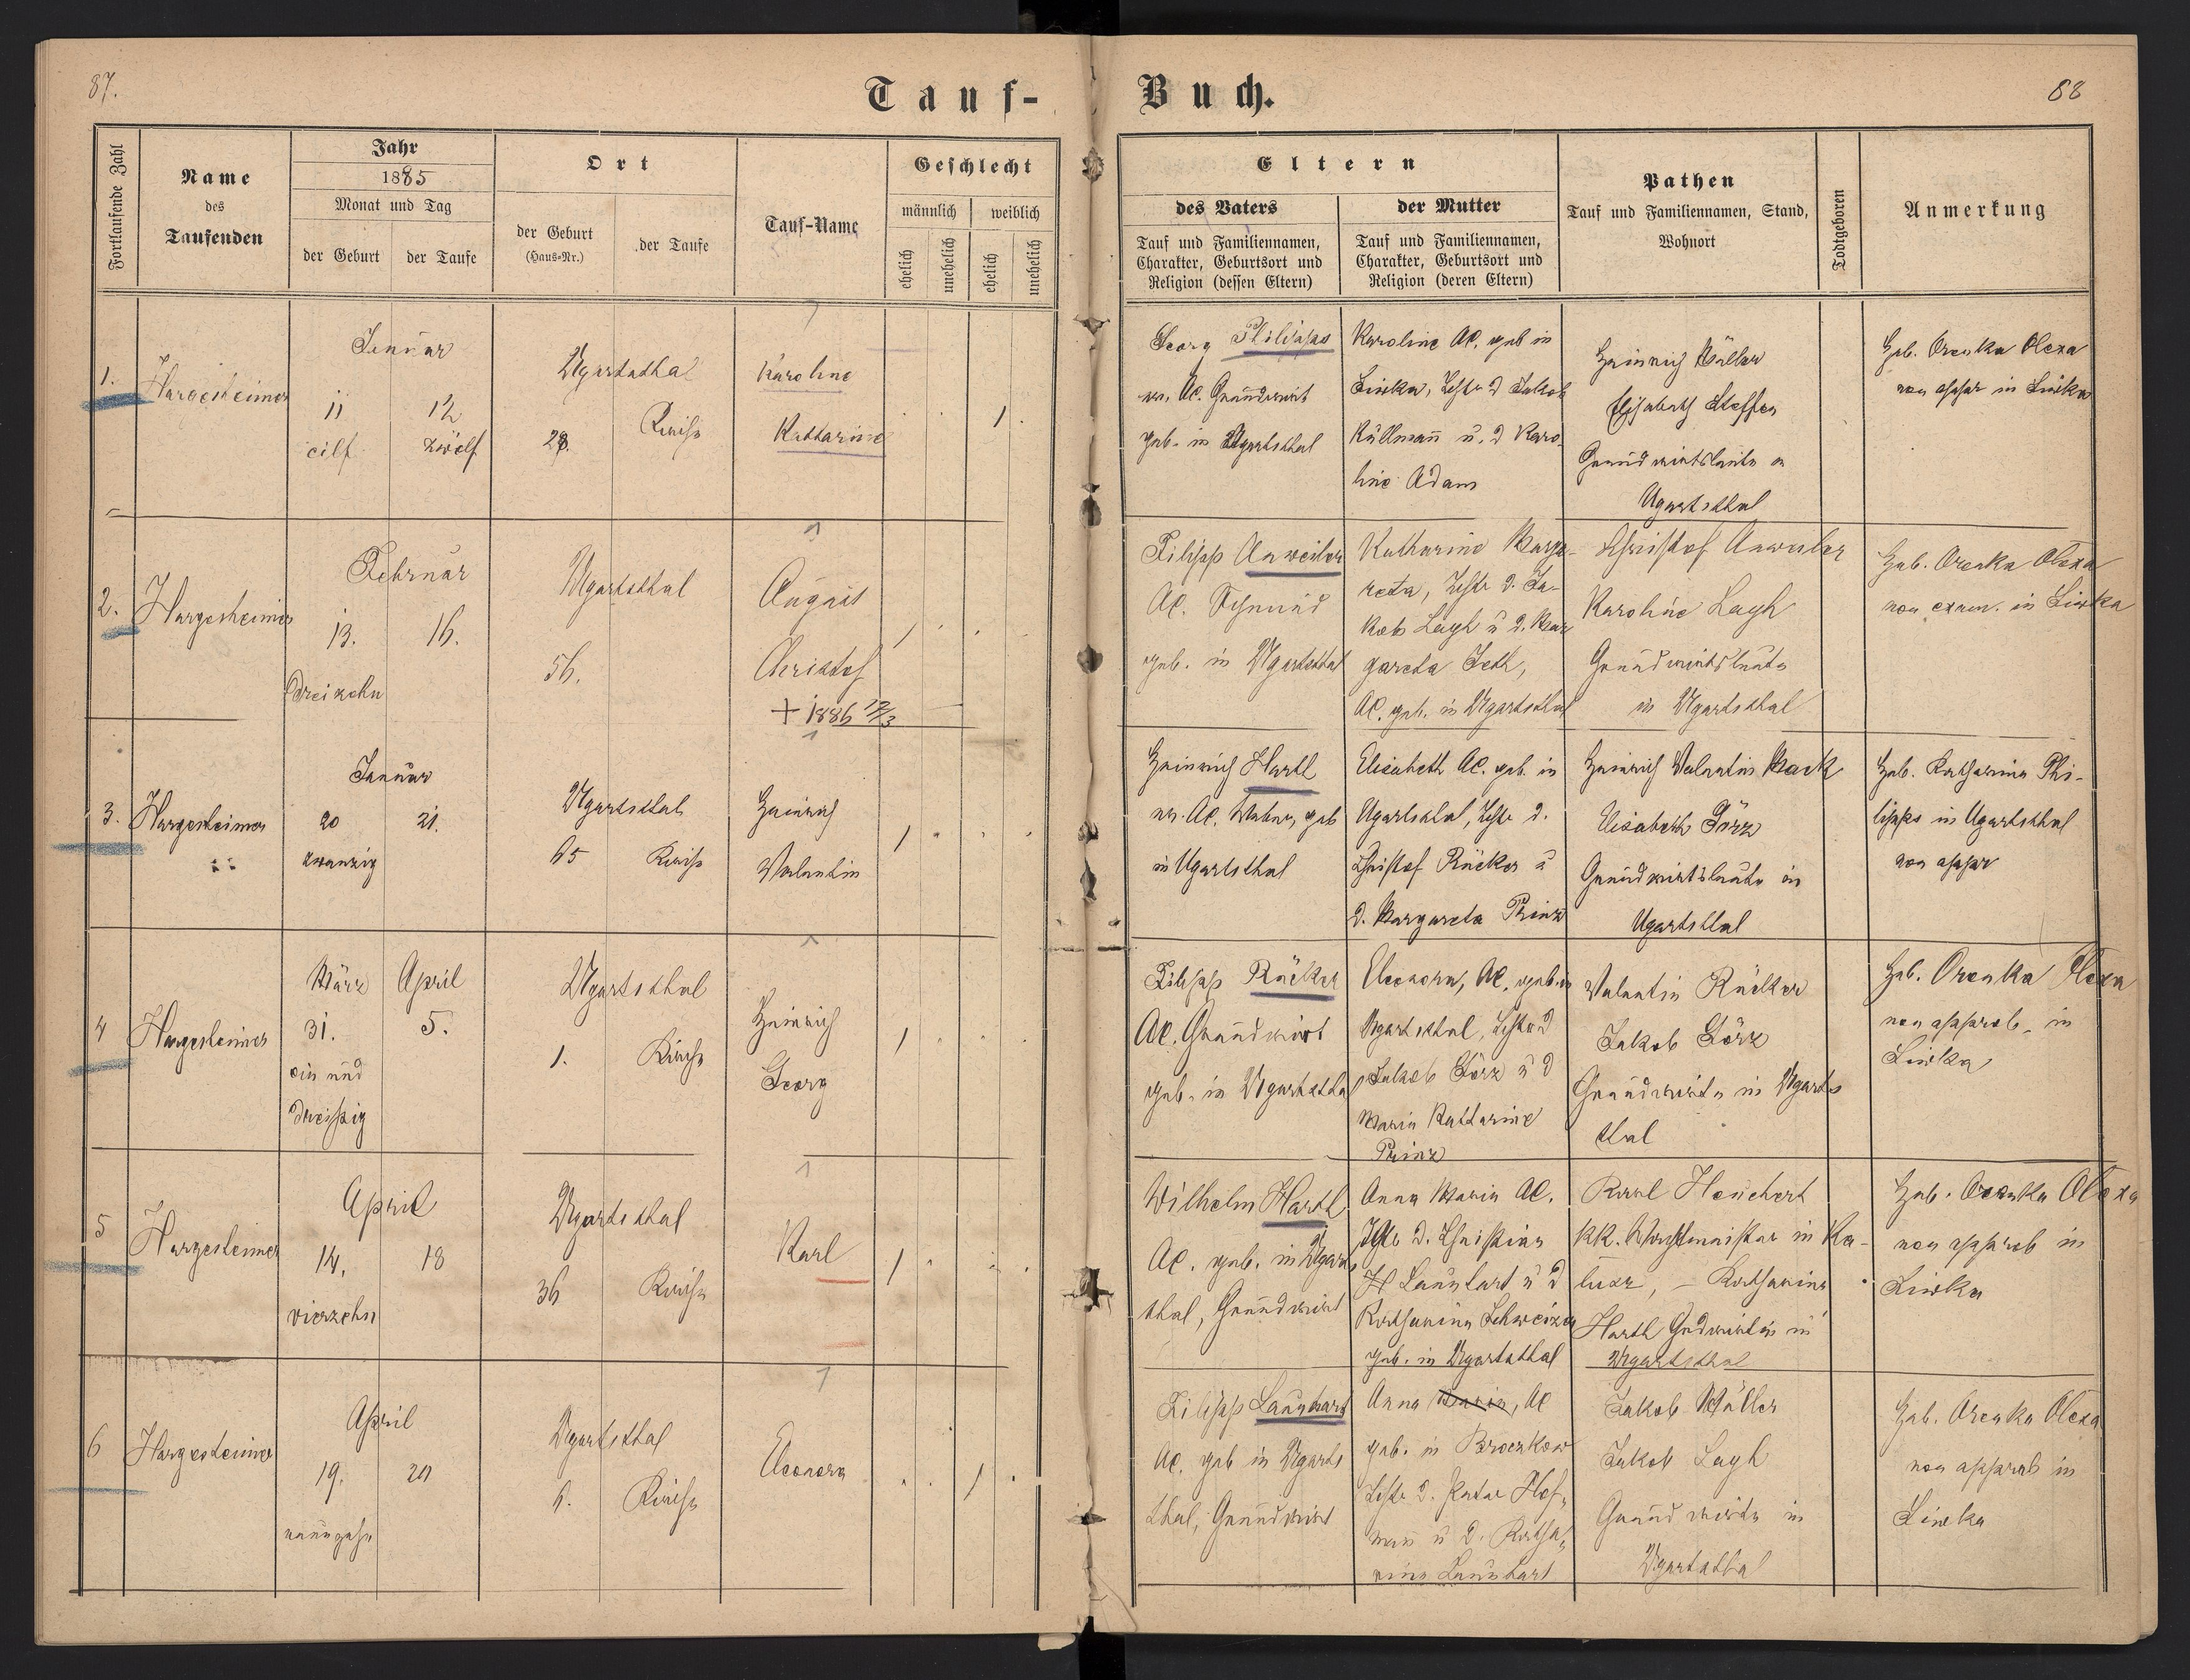 87.
Tauf-
Buch.
88
Fortlaufende Zahl
Name
des
Taufenden
Jahr
1885
Monat und Tag
der Geburt
der Taufe
Ort
der Geburt
(Haus-Nr.)
der Taufe
Tauf-Name
Geschlecht
männlich
weiblich
ehelich
unehelich
ehelich
unehelich
Eltern
des Vaters
Tauf und Familiennamen,
Charakter, Geburtsort und
Religion (dessen Eltern)
der Mutter
Tauf und Familiennamen,
Charakter, Geburtsort und
Religion (deren Eltern)
Pathen
Tauf und Familiennamen, Stand,
Wohnort
Todtgeboren
Anmerkung
1.
Hargesheimer
Januar
11
12
eilf
zwölf
Ugartsthal
28.
Kirche
Karoline
Katharine
1
Georg Philipps
Ac. Grundwirt
geb. in Ugartsthal
Karoline AC. geb in
Liwka, Tochter d Jakob
Küllmann u. d Karo-
line Adam
Heinrich Müller
Elisabeth Steffen
Grundwirtsleute in
Ugartsthal
Heb. Orenka Olexa
non appr in Liwka
2.
Hargesheimer
Februar
13.
16.
Dreizehn
Ugartsthal
56.
August
Christof
+ 1886 12/3
1
Filipp Anweiler
AC. Schmid
geb. in Ugartsthal
Katharine Marga-
reta, Tochter d. Ja-
kob Leyh u d. Mar
gareta Jeth,
AC. geb. in Ugartsthal
Christof Anweiler
Karoline Leyh
Grundwirtsleute
in Ugartsthal
Heb. Orenka Olexa
non exam. in Liwka
3.
Hargesheimer
Januar
20
21.
zwanzig
Ugartsthal
65
Kirche
Heinrich
Valentin
1
Heinrich Hartl
AC. Weber, geb
in Ugartsthal
Elisabeth AC. geb. in
Ugartsthal, Tochter d.
Christof Rücker u
d. Margareta Prinz
Heinrich Valentin Mack
Elisabeth Görz
Grundwirtsleute in
Ugartsthal
Heb. Katharina Phi-
lipps in Ugartsthal
non appr
4
Hargesheimer
März
April
31.
5.
ein und
dreißig
Ugartsthal
1.
Kirche
Heinrich
Georg
1
Filipp Rücker
AC. Grundwirt
geb. in Ugartsthal
Eleonora, AC. geb. in
Ugartsthal, Tochter d
Jakob Görz u d
Maria Katharine
Prinz
Valentin Rücker
Jakob Görz
Grundwirte in Ugarts
thal
Heb. Orenka Olexa
non approb. in
Liwka
5
Hargesheimer
April
14.
18
vierzehn
Ugartsthal
36
Kirche
Karl
1
Wilhelm Hartl
AC. geb. in Ugarts
thal, Grundwirt
Anna Maria AC.
Tochter d. Christian
Launhart u d
Katharina Schweizer
geb. in Ugartsthal
Karl Heuchert
KK. Wachtmeister in Ka-
lusz, - Katharina
Hartl Grdwirtin in
Ugartsthal
Heb. Orenka Olexa
non approb in
Liwka
6
Hargesheimer
April
19.
20
neunzehn
Ugartsthal
6.
Kirche
Eleonora
1
Filipp Launhart
AC. geb in Ugarts
thal, Grundwirt
Anna Maria, AC
geb. in Broczkow
Tochter d. Peter Hof-
mann u d. Katha-
rine Launhart
Jakob Müller
Jakob Leyh
Grundwirte in
Ugartsthal
Heb. Orenka Olexa
non approb in
Liwka